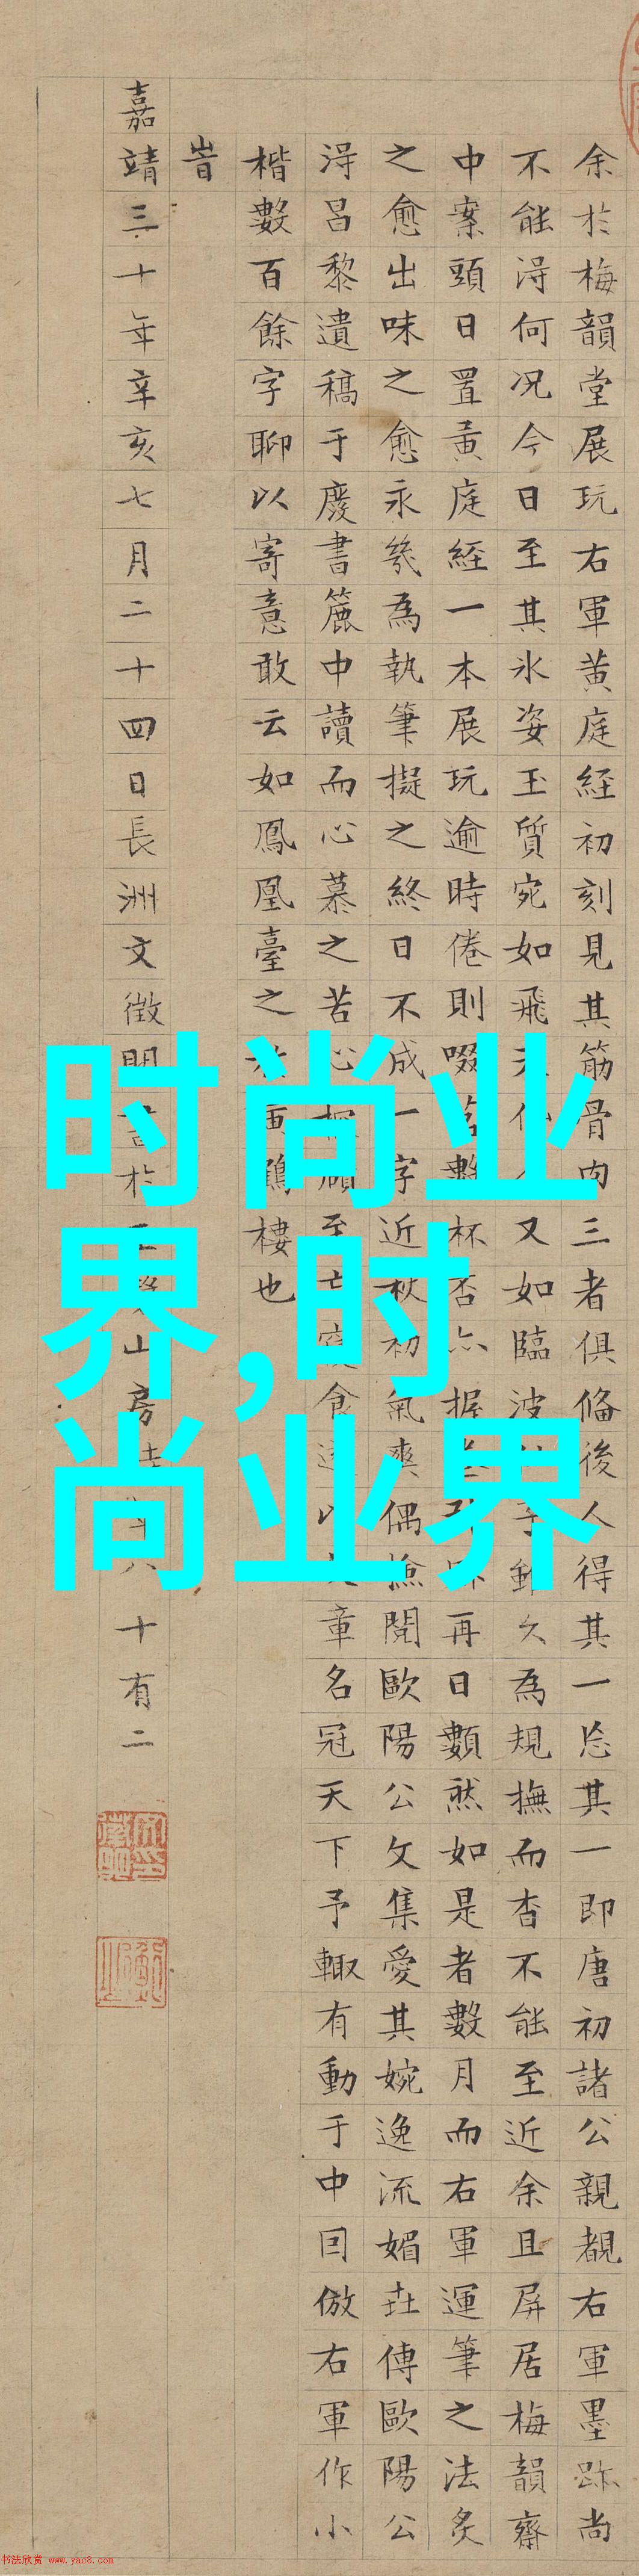 余於梅韻堂展玩右軍黄庭經初刻見其筋骨肉三者俱俻後人得其一忘其一即唐初諸公親覩右軍墨跡尚
不能淂何况今日至其氷姿玉質宛如飛天仙又如臨波為規撫而杳不能至近余且屏居梅韻齋
中案頭日置黄庭經一本展玩逾時倦則啜茗數杯否亦握再日數然如是者數月而右軍運筆之法炙
之愈出味之愈永幾為執筆擬之終日不成一字近秋初氣爽偶撿閱歐陽公文集愛其婉逸流媚且傳歐陽公
淂昌黎遺稿于廢書簏中讀而心慕之苦心至忘寢食遂以文章名冠天下予輙有動于中因倣右軍作小
楷數百餘字聊以寄意敢云如鳳凰臺之於黄鶴樓也
旹
嘉靖三十年辛亥七月二十四日長洲文徵明書於玉磬山房時年八十有二
时尚业
界,时
尚业界
书法欣赏 www.yac8.com